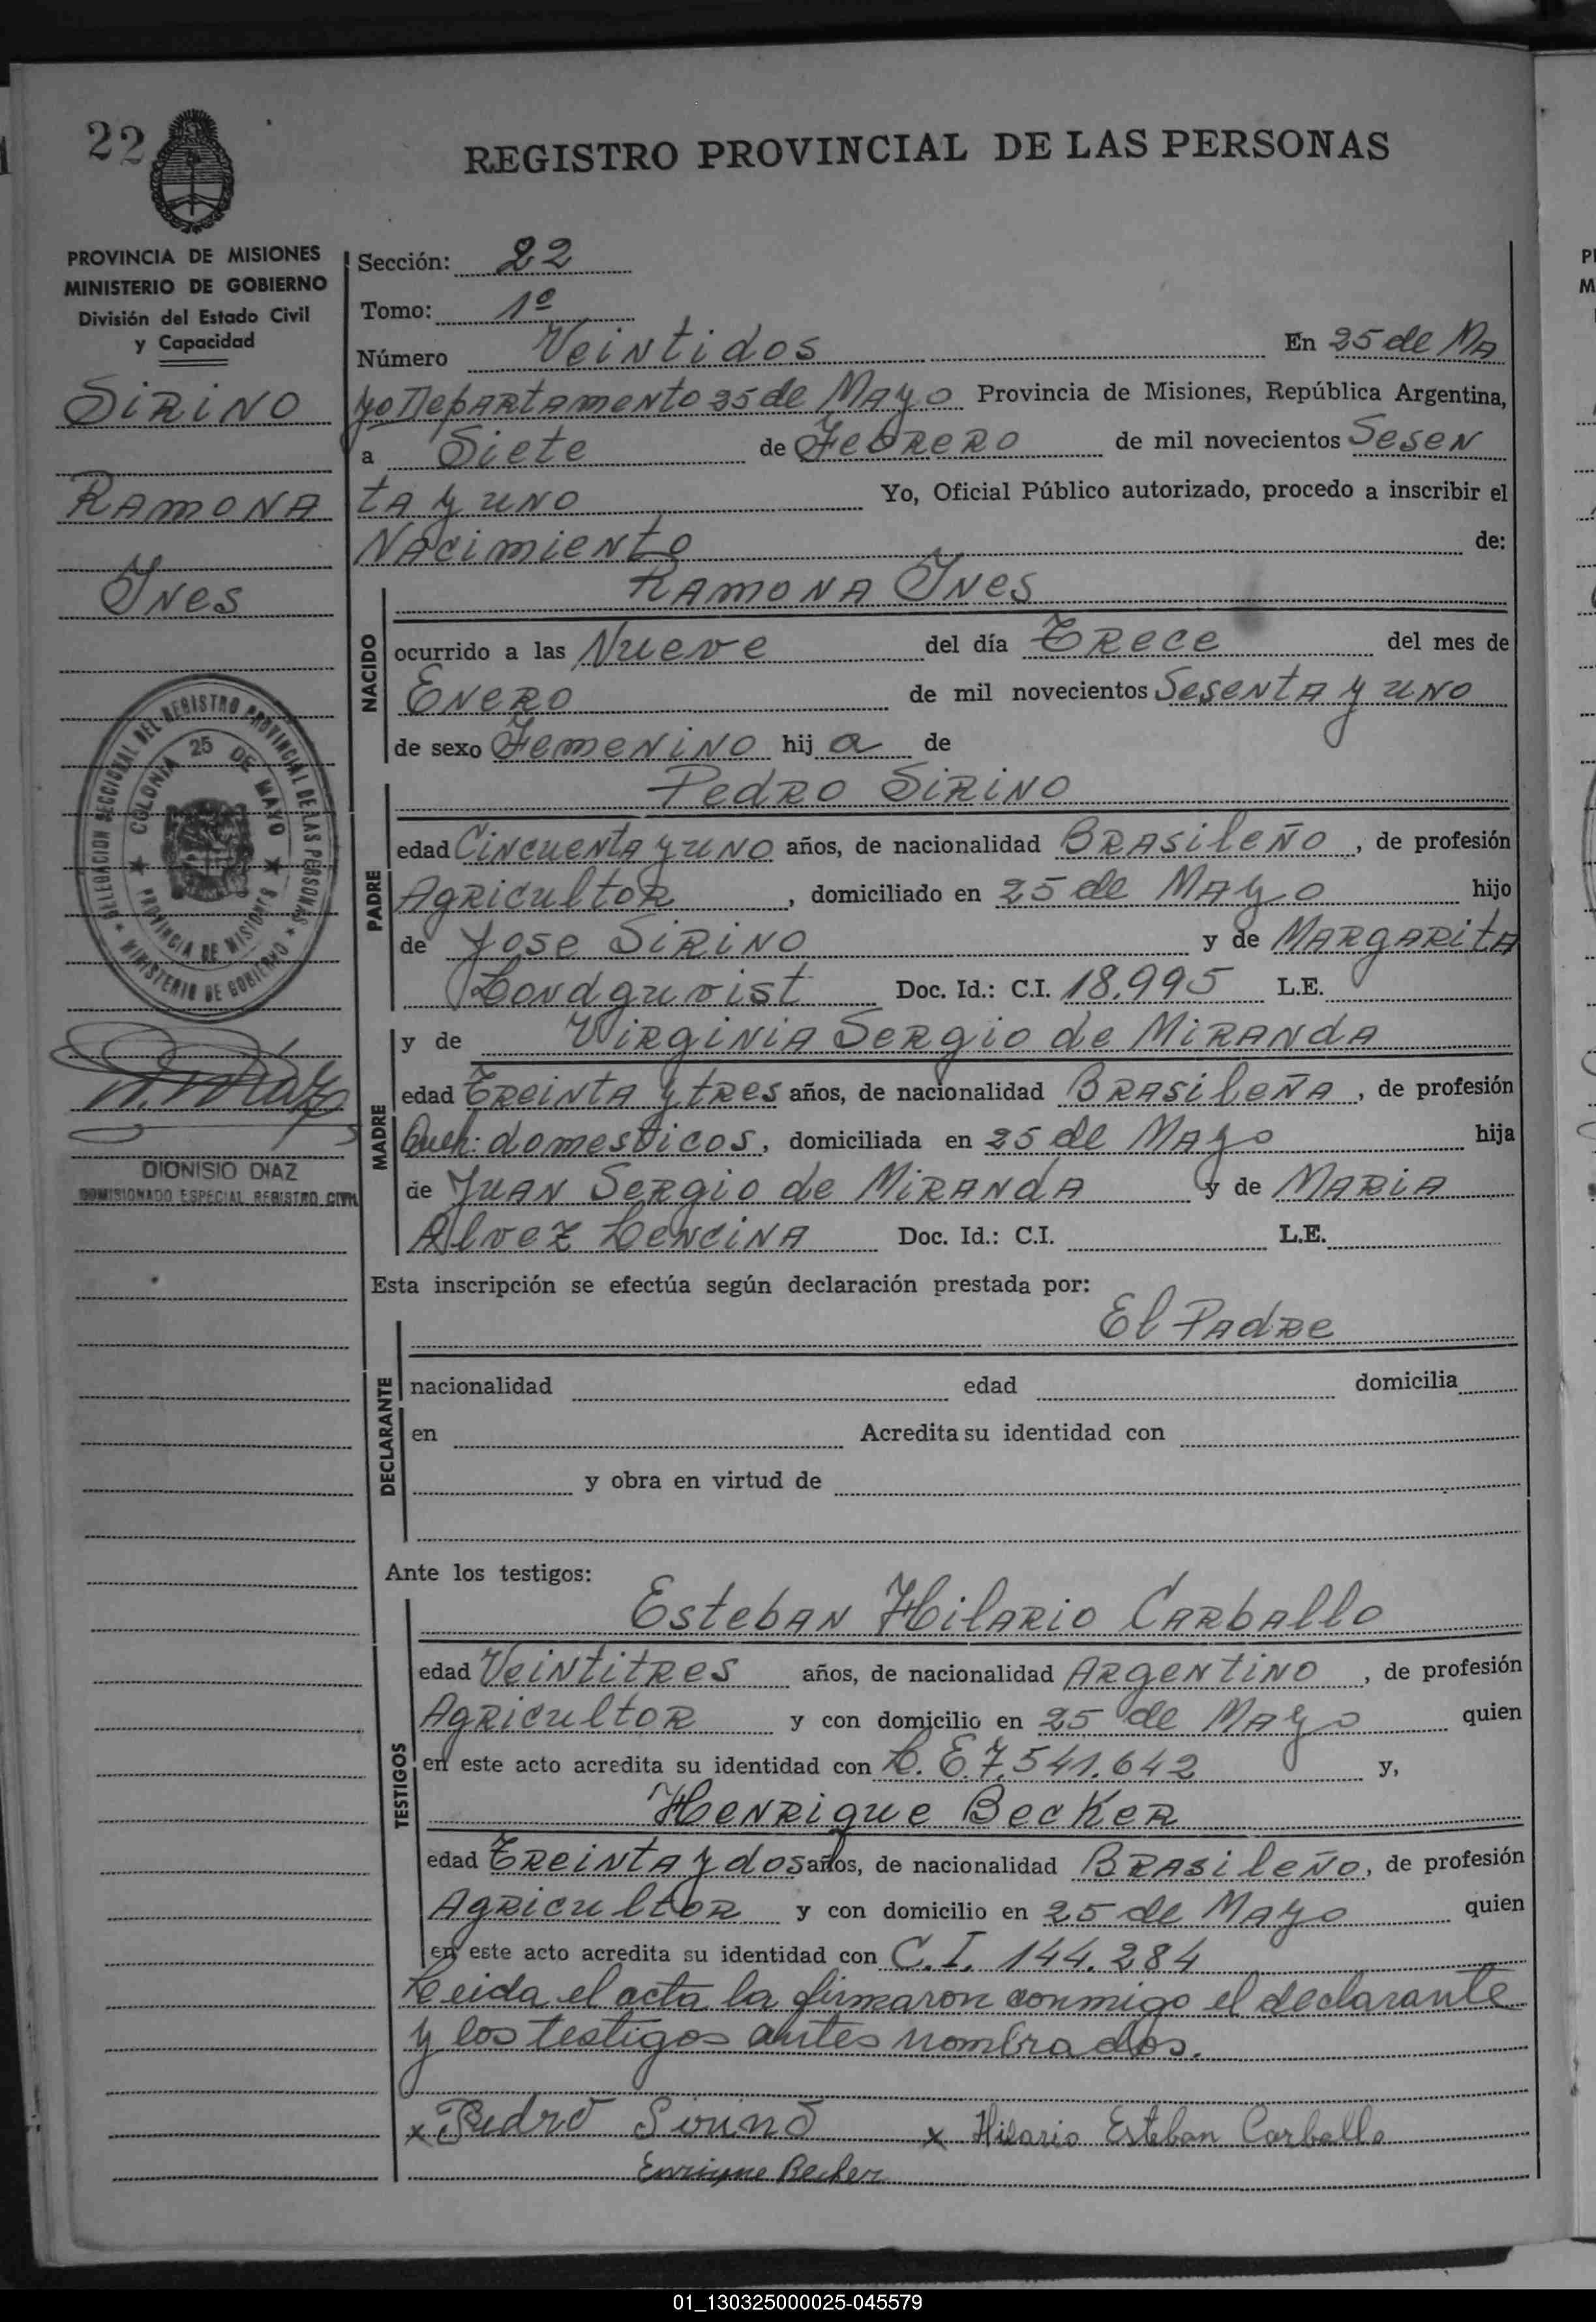 22
REGISTRO PROVINCIAL DE LAS PERSONAS
PROVINCIA DE MISIONES
MINISTERIO DE GOBIERNO
División del Estado Civil
y Capacidad
SiRiNO
RAMONA
INes
DELEGACION SECCIONAL DEL REGISTRO PROVINCIAL DE LAS PERSONAS
MINISTERIO DE GOBIERNO
COLONIA 25 DE MAYO
PROVINCIA DE MISIONES
DIONISIO DIAZ
COMISIONADO ESPECIAL REGISTRO CIVIL
Sección: 22
Tomo: 1º
Número Veintidos En 25 de MA
yo Departamento 25 de Mayo Provincia de Misiones, República Argentina,
a Siete de FebRERO de mil novecientos Sesen
tA y uNO Yo, Oficial Público autorizado, procedo a inscribir el
NAcimieNto de:
RAMONA INes
NACIDO
ocurrido a las Nueve del día TRece del mes de
ENERO de mil novecientos SesentA y uNO
de sexo FemeNiNO hij a de
PedRO SiRiNO
PADRE
edad CiNcueNtA y uNO años, de nacionalidad BRASileÑO, de profesión
AgRicultOR, domiciliado en 25 de MAyo hijo
de Jose SiRiNO y de MARgARitA
Londquvist Doc. Id.: C.I. 18.995 L.E.
y de ViRgiNiA SeRgio de MiRANdA
MADRE
edad TReiNtA y tRes años, de nacionalidad BRASileÑA, de profesión
Queh: domesticos, domiciliada en 25 de MAyo hija
de JuAN SeRgio de MiRANdA y de MARiA
Alvez LeNciNA Doc. Id.: C.I. L.E.
Esta inscripción se efectúa según declaración prestada por:
El PAdRe
DECLARANTE
nacionalidad edad domicilia
en Acredita su identidad con
y obra en virtud de
Ante los testigos:
EstebAN HilARio CARbAllo
TESTIGOS
edad VeiNtitRes años, de nacionalidad ARgeNtiNO, de profesión
AgRicultOR y con domicilio en 25 de MAyo quien
en este acto acredita su identidad con L. E. 7.541.642 y,
HeNRique BeckeR
edad TReiNtA y dos años, de nacionalidad BRASileÑo, de profesión
AgRicultOR y con domicilio en 25 de MAyo quien
en este acto acredita su identidad con C. I. 144.284
Leida el acta la firmaron conmigo el declarante
y los testigos antes nombrados.
x Pedro Sirino x Hilario Esteban Carballo
Enrique Becker
01_130325000025-045579